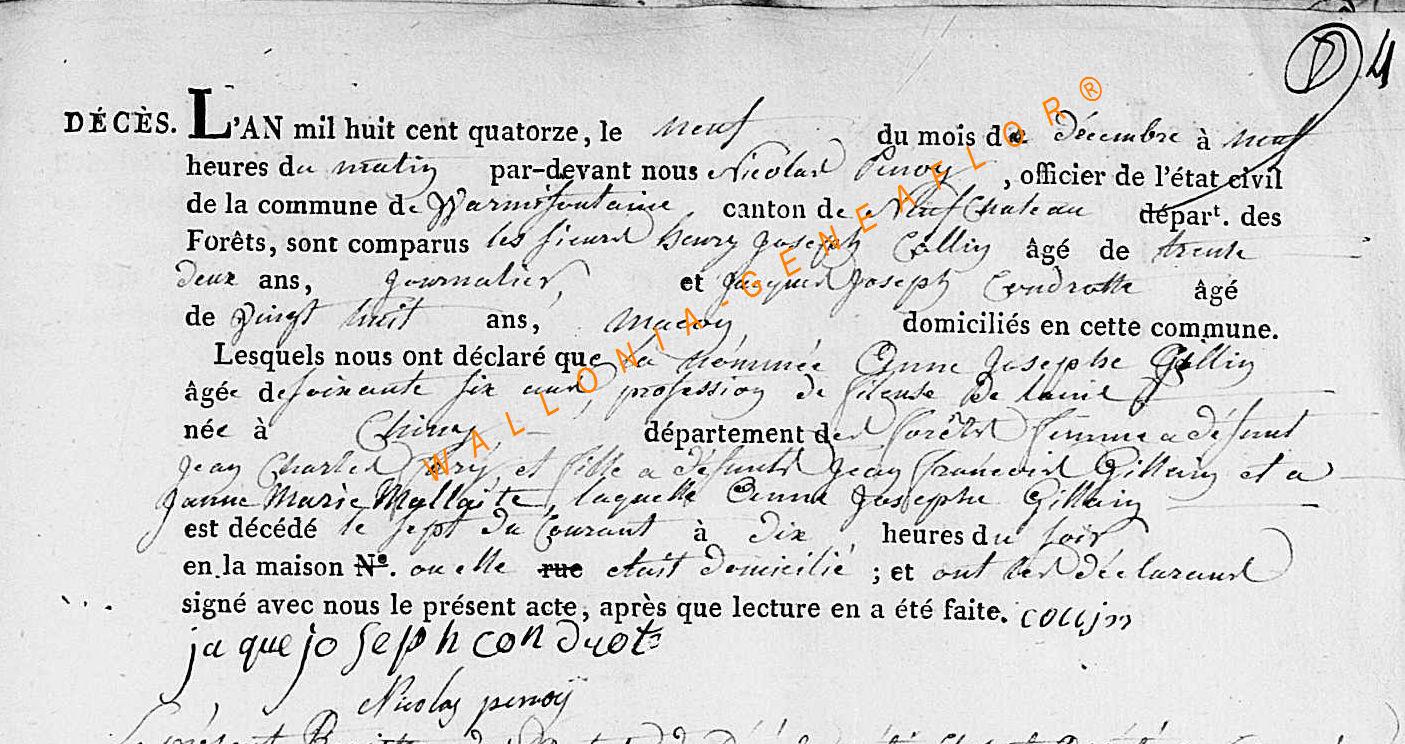 D 4
DÉCÈS. L'AN mil huit cent quatorze, le neuf du mois de décembre à neuf
heures du matin par-devant nous Nicolas Penoy, officier de l'état civil
de la commune de Warmifontaine canton de Neufchateau départ. des
Forêts, sont comparus les sieurs henry Joseph Collin âgé de trente
deux ans, journalier, et Jacques Joseph Condrotte âgé
de Vingt huit ans, macon domiciliés en cette commune.
Lesquels nous ont déclaré que la nommée Anne Josephe Gillin
âgée de soixante six ans, profession de fileuse de laine
née à Chiny département des forêts femme a défunt
Jean Charles et fille a défunts Jean francois Gillain et a
Janne Marie Mallaite, laquelle Anne Josephe Gillain
est décédé le sept du Courant à dix heures du soir
en la maison N°. ou elle rue etait domicilié ; et ont les déclarans
signé avec nous le présent acte, après que lecture en a été faite.
jaque joseph condrote
Nicolas penoÿ
WALLONIA-GENEAFLOR®